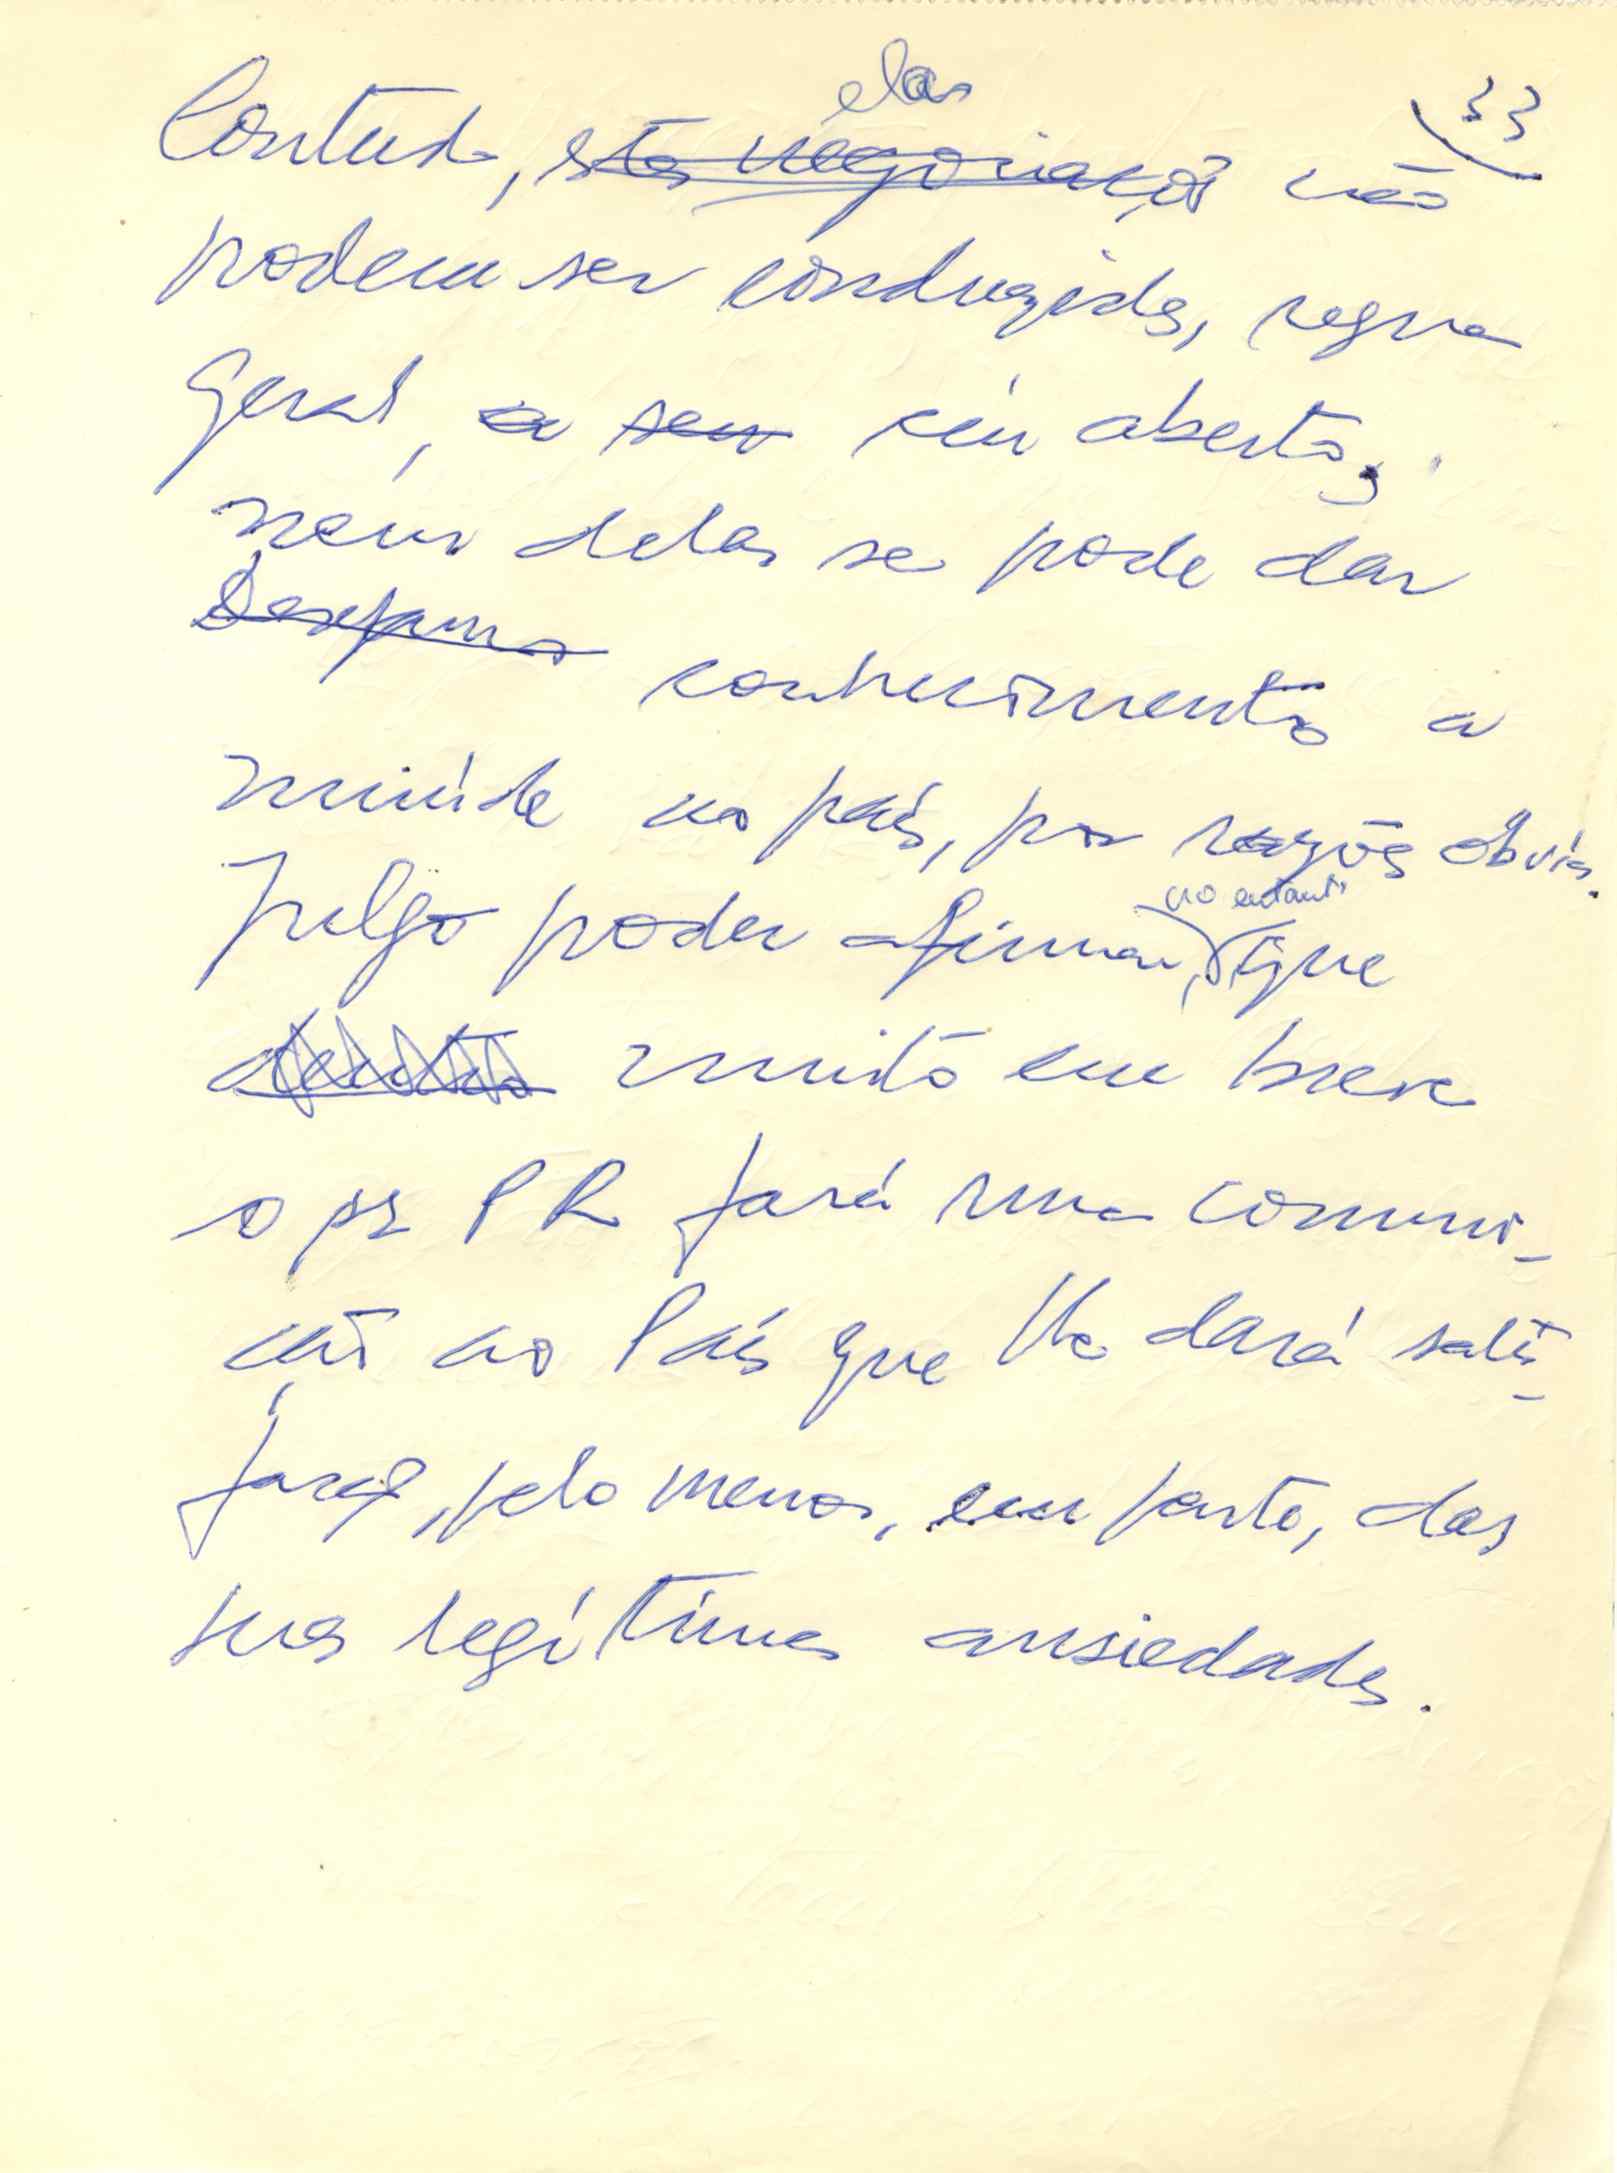 33
elas
Contudo, estas negociações não
podem ser conduzidas, regra
geral, a seu céu aberto,
nem delas se pode dar
Desejamos
conhecimento a
miúde ao país, por razões óbvias.
no entanto
Julgo poder afirmar, que
dentro muito em breve
o sr PR fará uma comuni-
cação ao País que lhe dará satis-
fação, pelo menos, em parte, das
suas legítimas ansiedades.